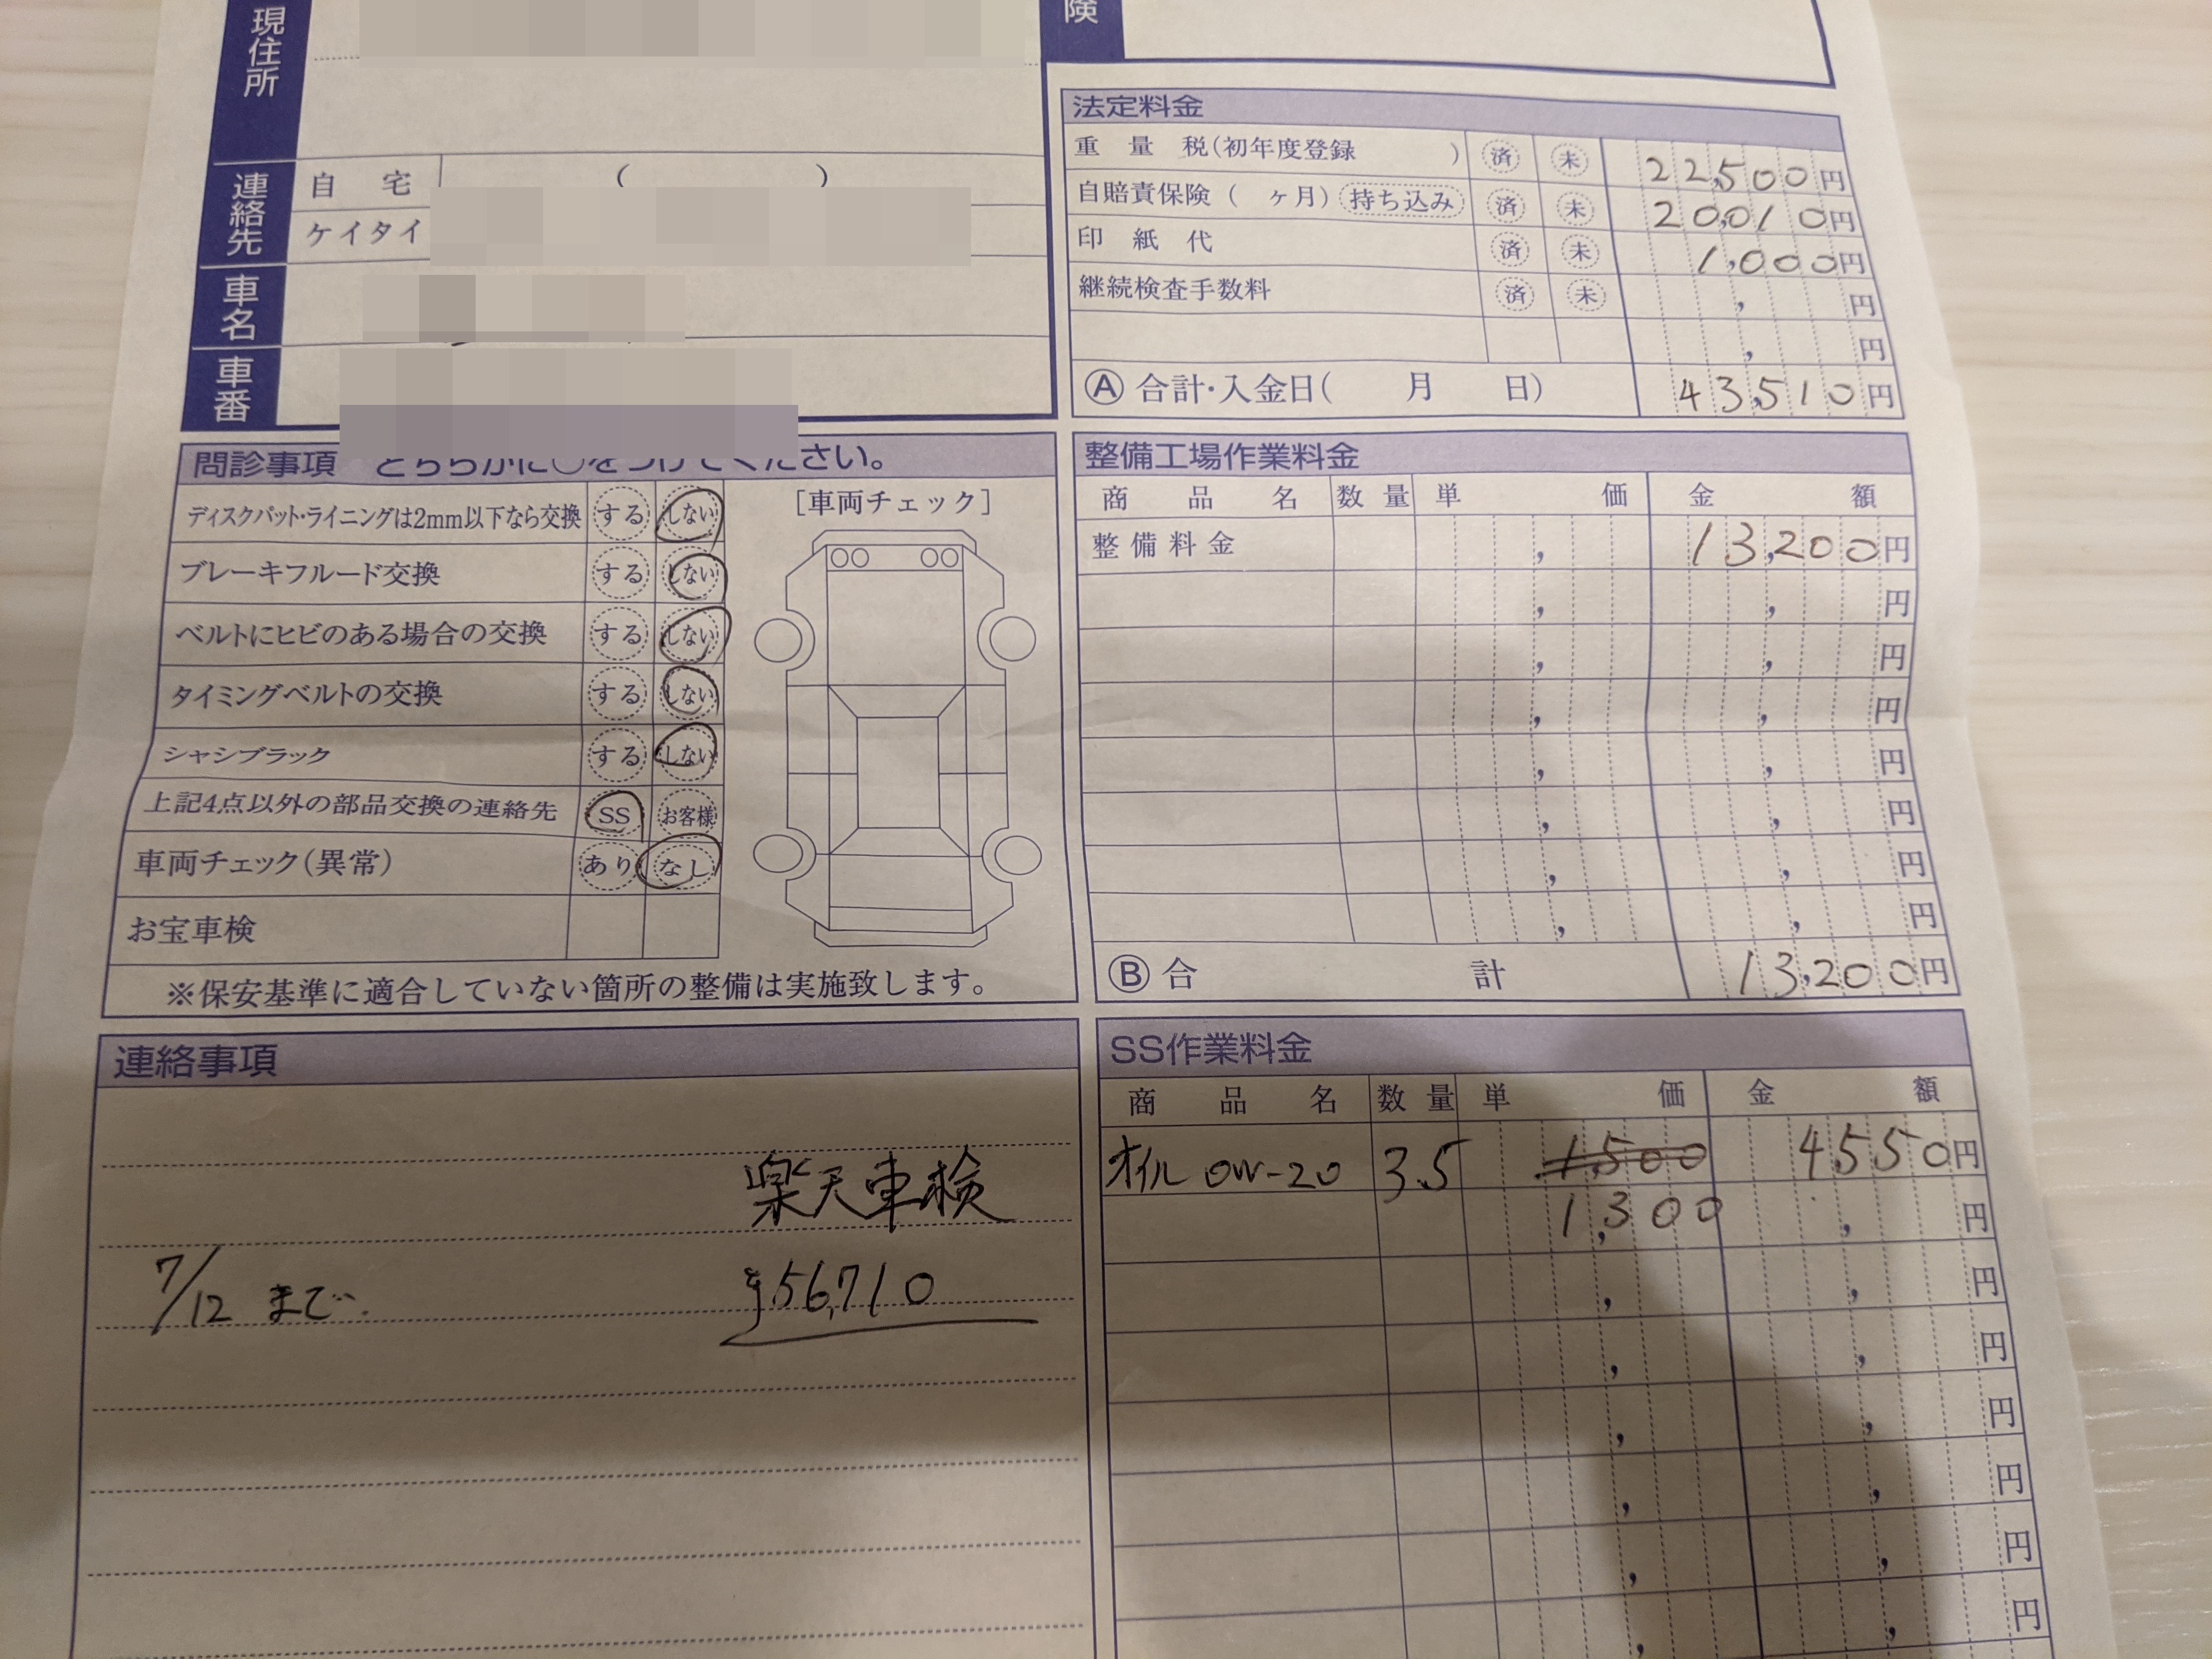 現住所
険
連絡先
自宅 ( )
ケイタイ
車名
車番
法定料金
重量税(初年度登録 ) 済 未 22,500円
自賠責保険( ヶ月) 持ち込み 済 未 20,010円
印紙代 済 未 1,000円
継続検査手数料 済 未 , 円
, 円
Ⓐ 合計・入金日( 月 日) 43,510円
問診事項 どちらかに○をつけてください。
ディスクパット・ライニングは2mm以下なら交換 する しない
ブレーキフルード交換 する しない
ベルトにヒビのある場合の交換 する しない
タイミングベルトの交換 する しない
シャシブラック する しない
上記4点以外の部品交換の連絡先 SS お客様
車両チェック(異常) あり なし
お宝車検
[車両チェック]
※保安基準に適合していない箇所の整備は実施致します。
整備工場作業料金
商品名 数量 単価 金額
整備料金 , 13,200円
, , 円
, , 円
, , 円
, , 円
, , 円
, , 円
, , 円
Ⓑ 合計 13,200円
連絡事項
楽天車検
7/12 まで. ¥56,710
SS作業料金
商品名 数量 単価 金額
オイル 0W-20 3.5 1,500 4,550円
1,300 , 円
, , 円
, , 円
, , 円
, , 円
, , 円
, , 円